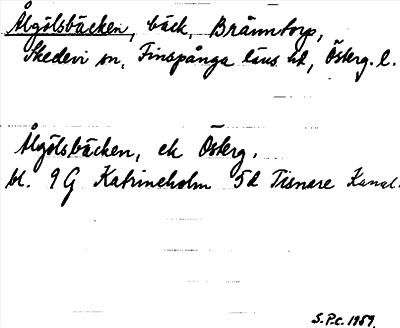 Ålgölsbäcken, bäck, Bränntorp,
Skedevi sn, Finspånga läns hd, Österg. l.
Ålgölsbäcken, ek Österg.
bl. 9G Katrineholm 5d Tisnare Kanal.
S.P.c. 1959.